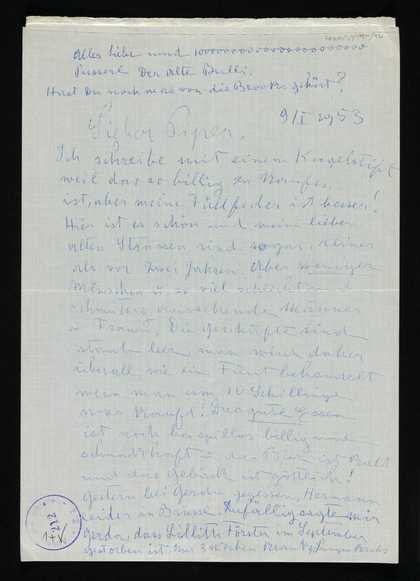 Alles Liebe und 1000000000000000000000000
Pusserl Der alte Bulli.
Hast Du noch was von die Brooks gehört?
9/I 1953
Lieber Piper.
Ich schreibe mit einem Kugelstift
weil das so billig zu kaufen
ist, aber meine Füllfeder ist besser!
Hier ist es schön und meine lieben
alten Strassen sind sogar kleiner
als vor zwei Jahren. Aber weniger
Menschen u. so viel schlecht und
schmutzig aussehende Männer
u Frauen. Die Geschäfte sind
stets leer man wird daher
überall wie ein Fürst behandelt
wenn man um 10 Schillinge
was kauft! Das gute Essen
ist noch beispiellos billig und
schmackhaft u. das Bier ist Pracht
und das Gebäck ist göttlich!
Gestern bei Gerda gegessen, Hermann
leider in Brüssel. Zufällig sagte mir
Gerda, dass Lillith Förster im September
gestorben ist. Nur 3 Wochen
272
1+V.